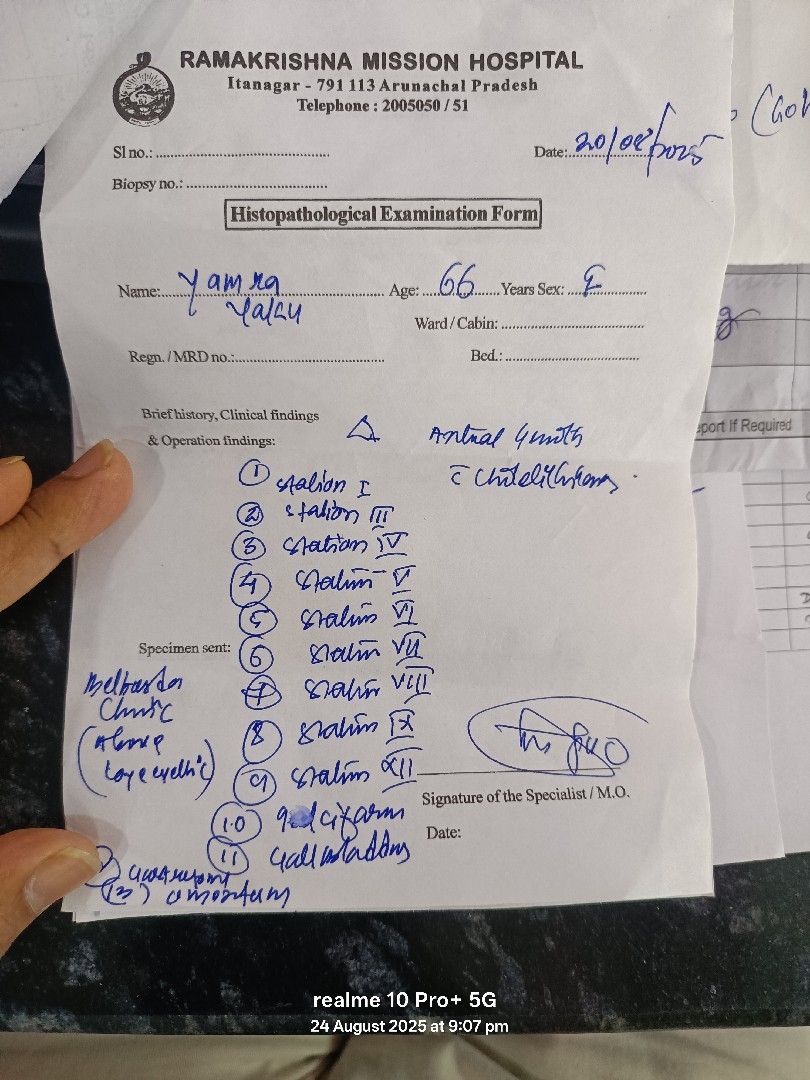 RAMAKRISHNA MISSION HOSPITAL
Itanagar - 791 113 Arunachal Pradesh
Telephone : 2005050 / 51
Sl no.:
Date: 20/08/2025
Biopsy no.:
Histopathological Examination Form
Name: Yamra Age: 66 Years Sex: F
Ward / Cabin:
Regn. / MRD no.:
Bed.:
Brief history, Clinical findings
& Operation findings: △ Antral Growth
c̄
① Station I
② Station III
③ Station IV
④ Station V
⑤ Station VI
Specimen sent: ⑥ Station VII
⑦ Station VIII
Clinic
(Above
⑧ Station IX
⑨ Station XII
Signature of the Specialist / M.O.
10
Date:
11 Gallbladder
omentum
port If Required
realme 10 Pro+ 5G
24 August 2025 at 9:07 pm